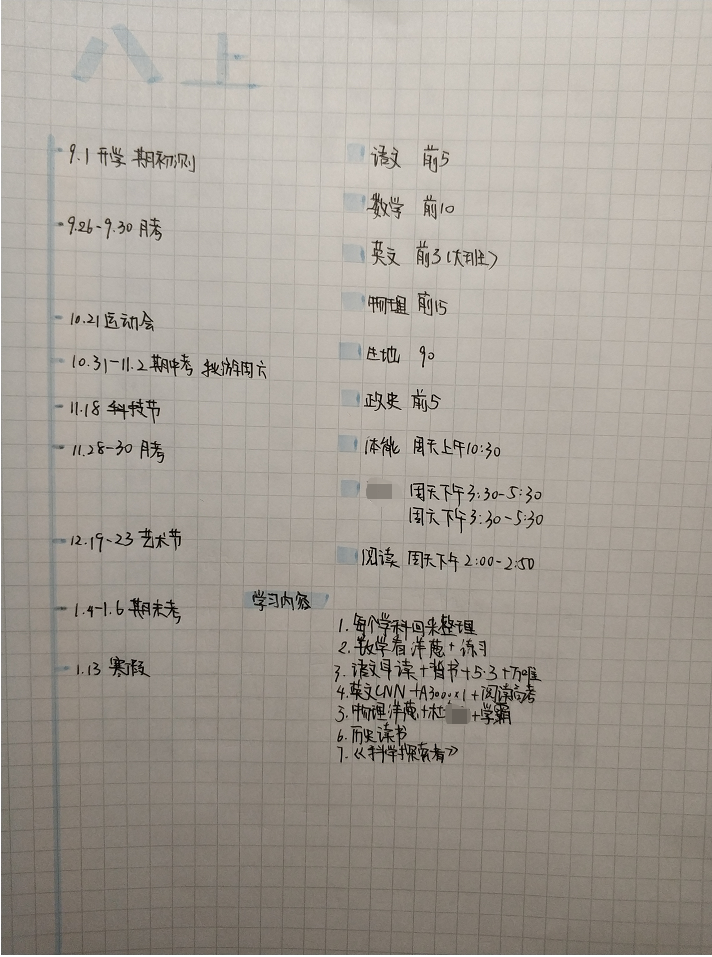 八上
9.1 开学 期初测
9.26-9.30 月考
10.21 运动会
10.31-11.2 期中考 秋游周六
11.18 科技节
11.28-30 月考
12.19-23 艺术节
1.4-1.6 期末考
1.13 寒假
语文 前5
数学 前10
英文 前3(大班)
物理 前15
生地 90
政史 前5
体能 周天上午10:30
周天下午3:30-5:30
周六下午3:30-5:30
阅读 周天下午2:00-2:50
学习内容
1. 每个学科回来整理
2. 数学看洋葱+练习
3. 语文早读+背书+5·3+万唯
4. 英文CNN+A3000x1+阅读高考
5. 物理洋葱+杜 +学霸
6. 历史读书
7.《科学探索者》